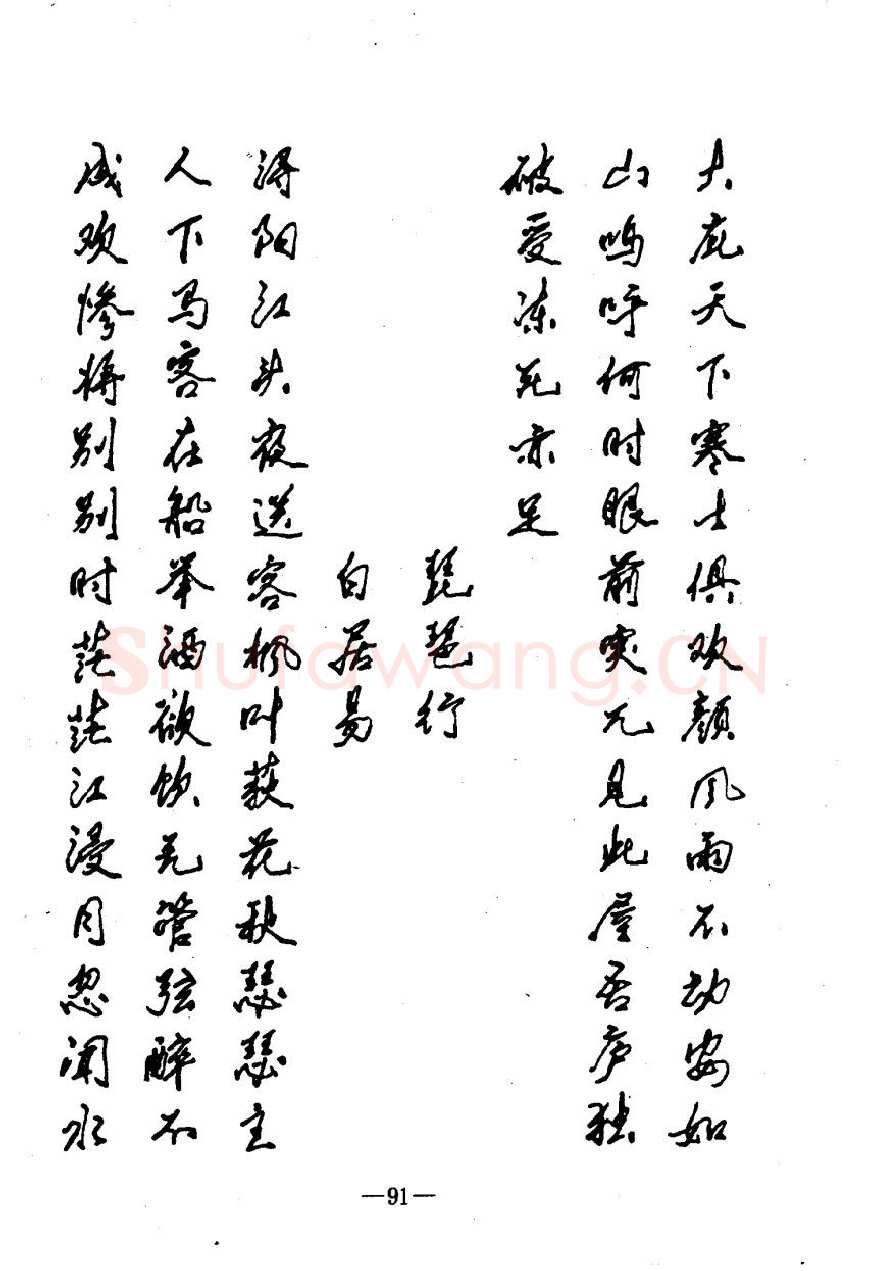 大庇天下寒士俱欢颜风雨不动安如
山呜呼何时眼前突兀见此屋吾庐独
破受冻死亦足
琵琶行
白居易
浔阳江头夜送客枫叶荻花秋瑟瑟主
人下马客在船举酒欲饮无管弦醉不
成欢惨将别别时茫茫江浸月忽闻水
Shufawang.CN
—91—